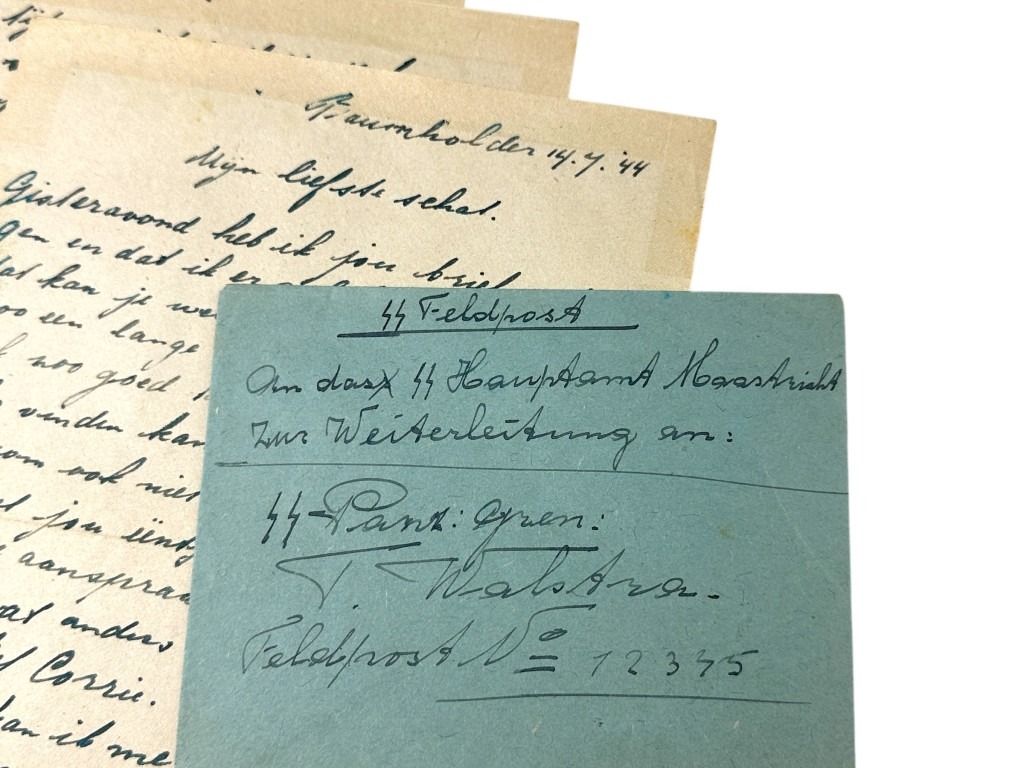 Baumholder 14.7.'44
Mijn liefste schat.
Gisteravond heb ik jou brief
gen en dat ik er
dat kan je we
zoo een lange
k zoo goed
e vinden kan
om ook niet
t jou
aanspraa
wat anders
Corrie.
kan ik me
SS Feldpost
An das SS Hauptamt Maastricht
Zur Weiterleitung an:
SS-Panz: Gren:
T. Walstra.
Feldpost No 12345